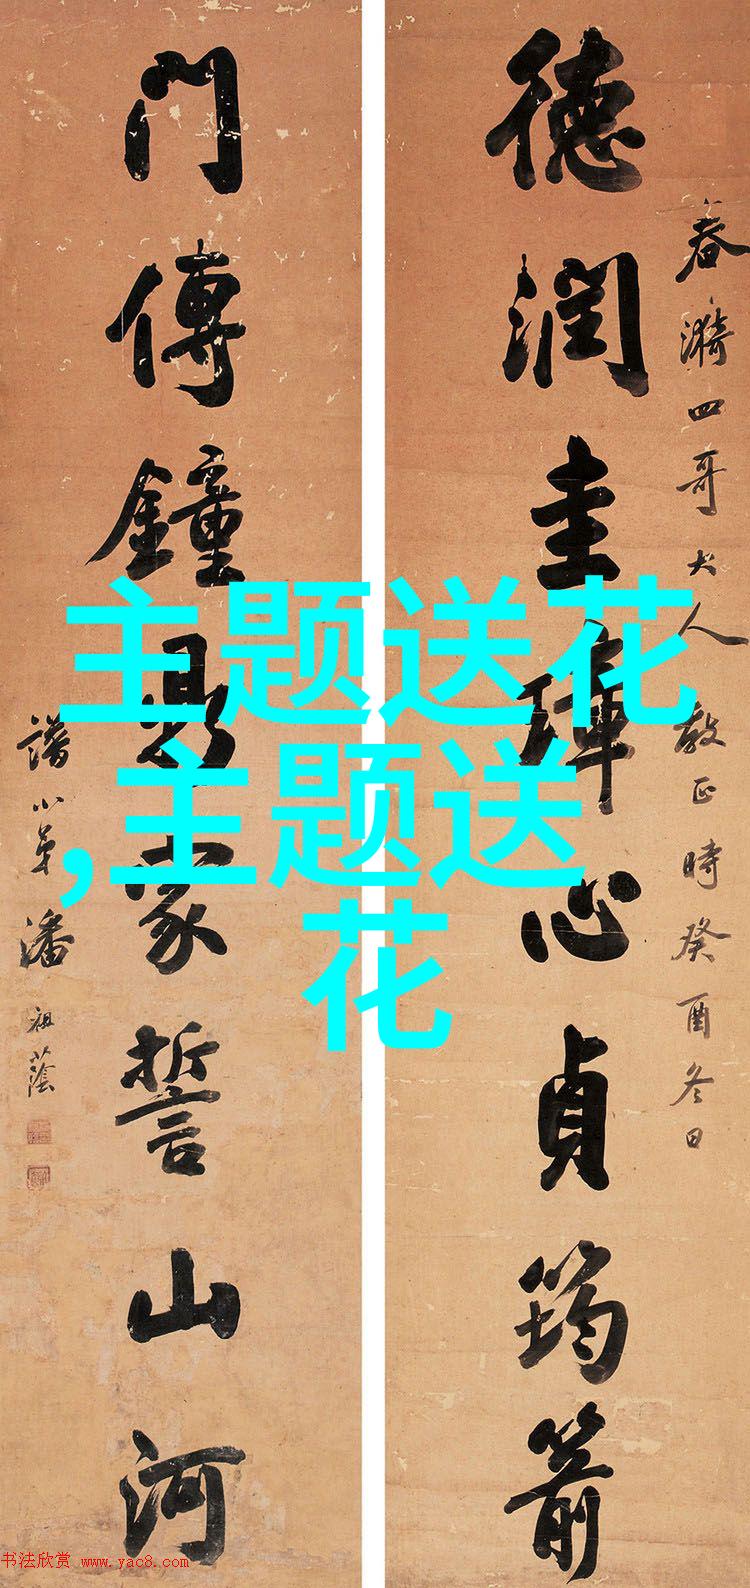 德潤圭璋心貞筠箭
春漪四哥大人教正時癸酉冬日
門傳鐘鼎家誓山河
譜小弟潘祖蔭
主题送花
,主题送
花
书法欣赏 www.yac8.com